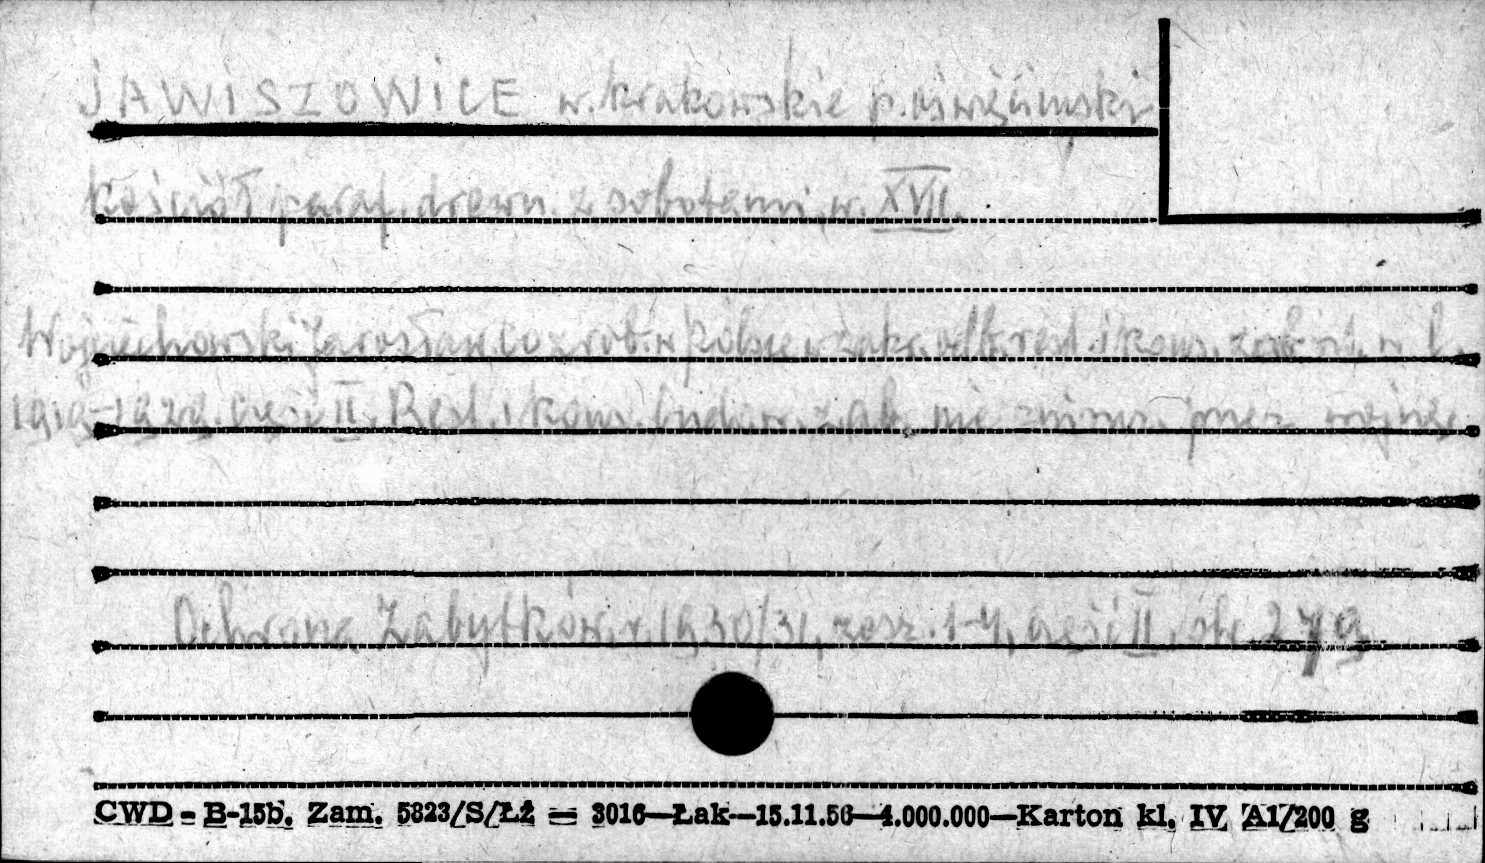 JAWISZOWICE w. krakowskie p. oświęcimski
Kościół paraf. drewn. z sobotami, w. XVII.
Wojciechowski Jarosław. Co zrob. w Polsce w zakr. odb. rest. i kons. zab. szt. w l.
1919-1929. Część II. Rest. i kons. budow. zab. nie zniszcz. przez wojnę
Ochrona Zabytków, r. 1930/31, zesz. 1-4, część II, str. 279
CWD - B-15b. Zam. 5823/S/ŁŻ = 3016—Łak—15.11.56—4.000.000—Karton kl. IV A1/200 g